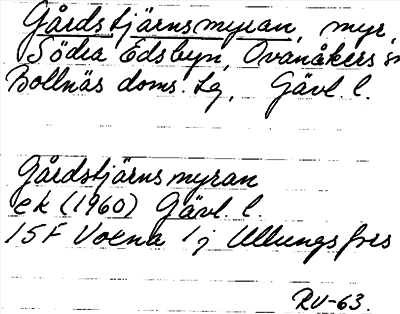 Gårdstjärnsmyran, myr,
Södra Edsbyn, Ovanåkers sn
Bollnäs doms. lg, Gävl. l.
Gårdstjärnsmyran
ek (1960) Gävl. l.
15F Voxna 1j Ullungsfors
RV-63.